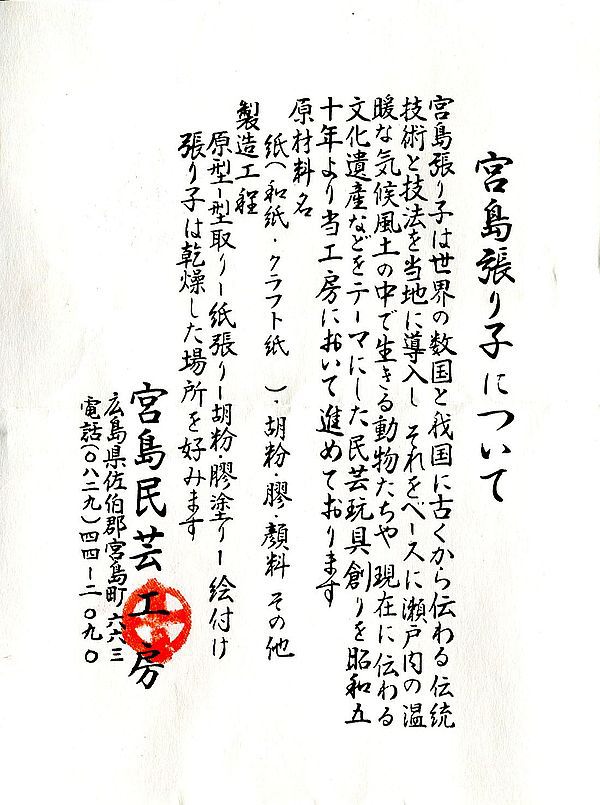 宮島張り子について
宮島張り子は世界の数国と我国に古くから伝わる伝統
技術と技法を当地に導入し それをベースに瀬戸内の温
暖な気候風土の中で生きる動物たちや 現在に伝わる
文化遺産などをテーマにした民芸玩具創りを昭和五
十年より当工房において進めております
原材料名
紙（和紙・クラフト紙 ）・胡粉・膠・顔料 その他
製造工程
原型ー型取りー紙張りー胡粉・膠塗りー 絵付け
張り子は乾燥した場所を好みます
宮島民芸工房
広島県佐伯郡宮島町 六六三
電話（〇八二九）四四ー二〇九〇